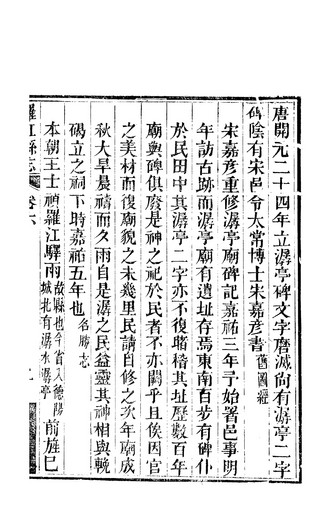 唐開元二十四年立潺亭碑文字磨滅尚有潺亭二字
碑陰有宋邑令太常博士宋嘉彥書舊圖經
宋嘉彥重修潺亭廟碑記嘉祐三年予始署邑事明
年訪古跡而潺亭廟有遺址存焉東南百步有碑仆
於民田中其潺亭二字亦不復階楷其址歷數百年
廟輿碑俱廢是神之祀於民者不亦闕乎且俟因官
之美材而復廟貌之未幾里民請自修之次年廟成
秋大旱晨禱而久雨自是潺之民益靈其神相與輓
碣立之祠下時嘉祐五年也名勝志
本朝王士禎羅江驛雨故縣也今省入德陽城北有潺水潺亭前旌已
羅江縣志
卷六